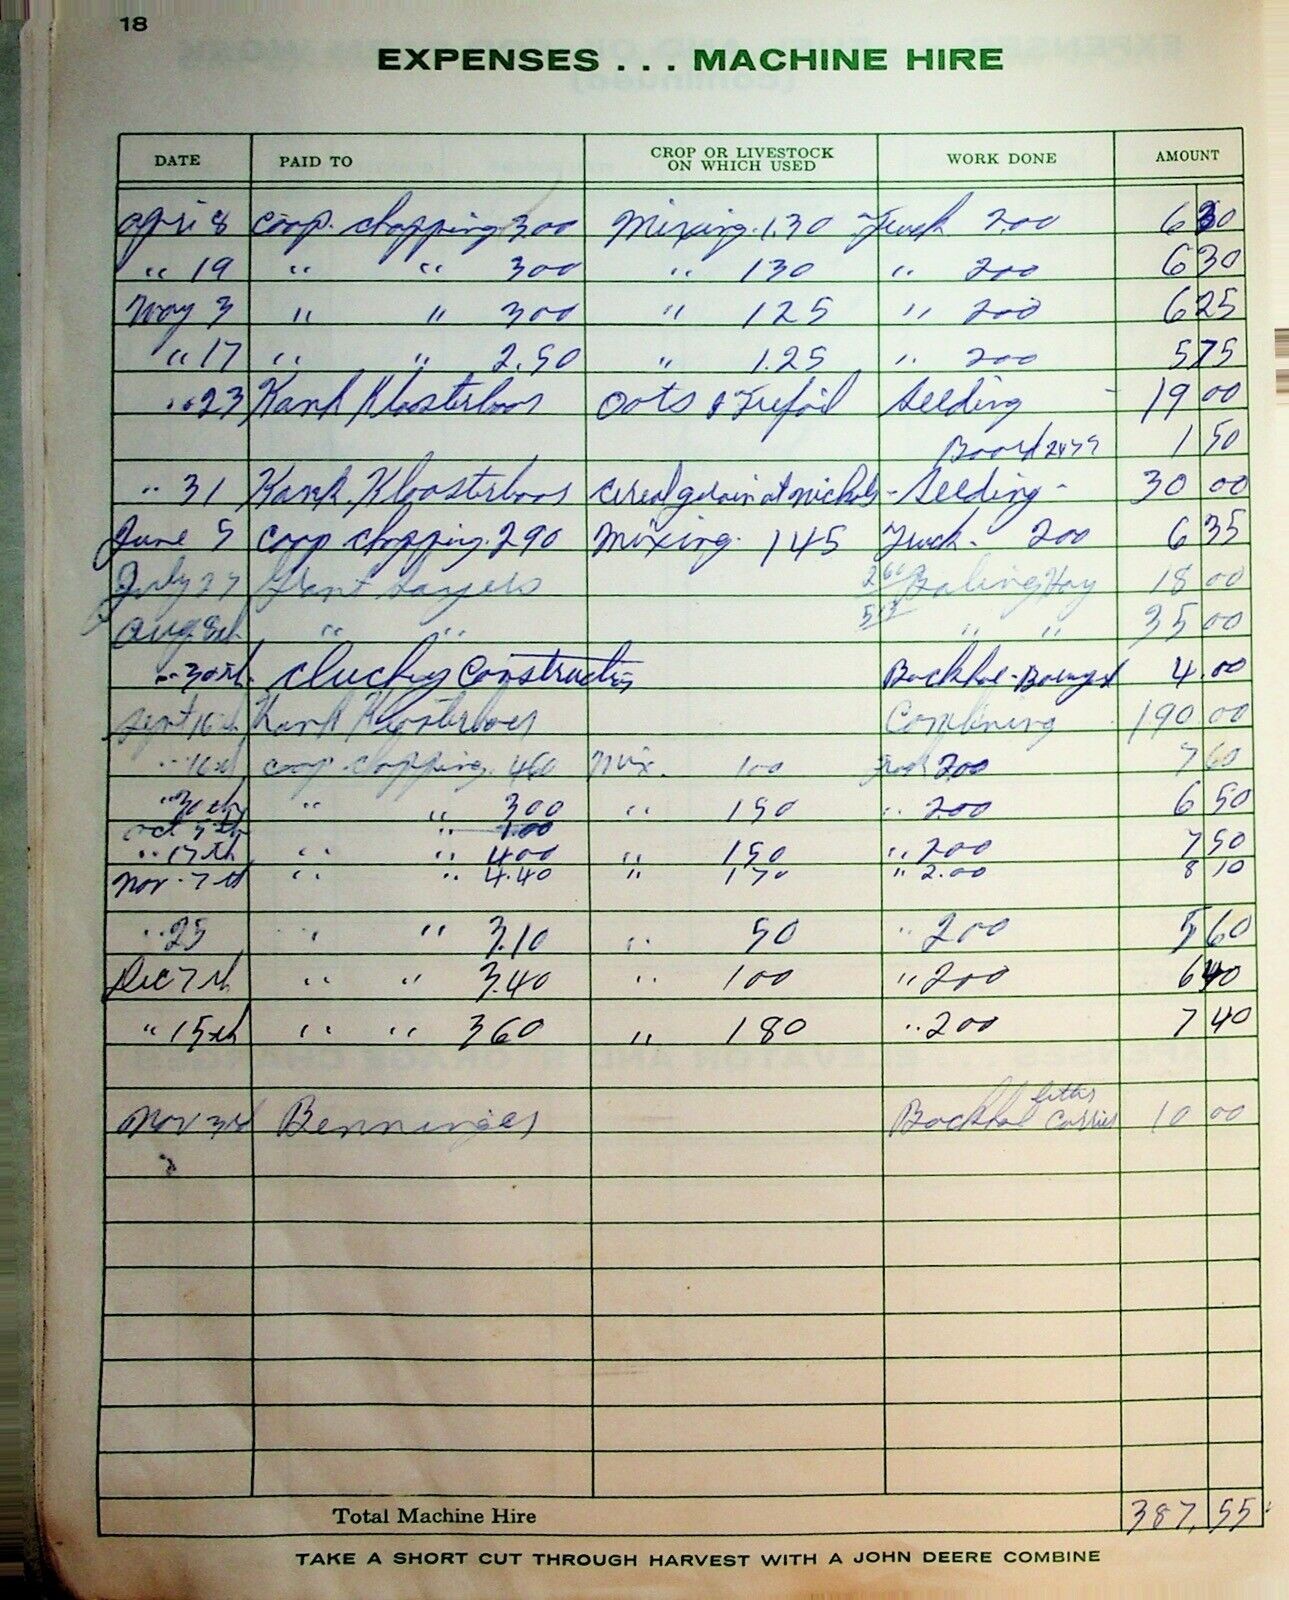 18
EXPENSES . . . MACHINE HIRE
DATE PAID TO CROP OR LIVESTOCK ON WHICH USED WORK DONE AMOUNT
April 8 Coop. chopping 300 Mixing. 1.30 Truck 2.00 6 30
" 19 " " 300 " 130 " 200 6 30
May 3 " " 300 " 125 " 200 6 25
" 17 " " 2.50 " 1.25 " 200 5 75
" 23 Hank Kloosterboer Oats & Trefoil Seeding - 19 00
Board 1 50
" 31 Hank Kloosterboer cereal grain at Nichols - Seeding - 30 00
June 5 Coop chopping. 290 Mixing. 145 Truck. 200 6 35
July 27 Grant Sayers Baling Hay 18 00
Aug. 8th " " " " 35 00
" 30th Construction Backhoe 4.00
Sept 16th Hank Kloosterboer Combining 190 00
" 16th coop. copping. 460 Mix. 100 Truck 200 7 60
" 30th " " 300 " 150 " 200 6 50
Oct 5th " 1.00
" 17th " " 400 " 150 " 200 7 50
Nov. 7th " " 4.40 " 170 " 2.00 8 10
" 25 " " 3.10 " 50 " 200 5 60
Dec 7th " " 3.40 " 100 " 200 6 40
" 15th " " 360 " 180 " 200 7 40
Nov 3rd Benninger Backhoe 10 00
Total Machine Hire 387,55
TAKE A SHORT CUT THROUGH HARVEST WITH A JOHN DEERE COMBINE